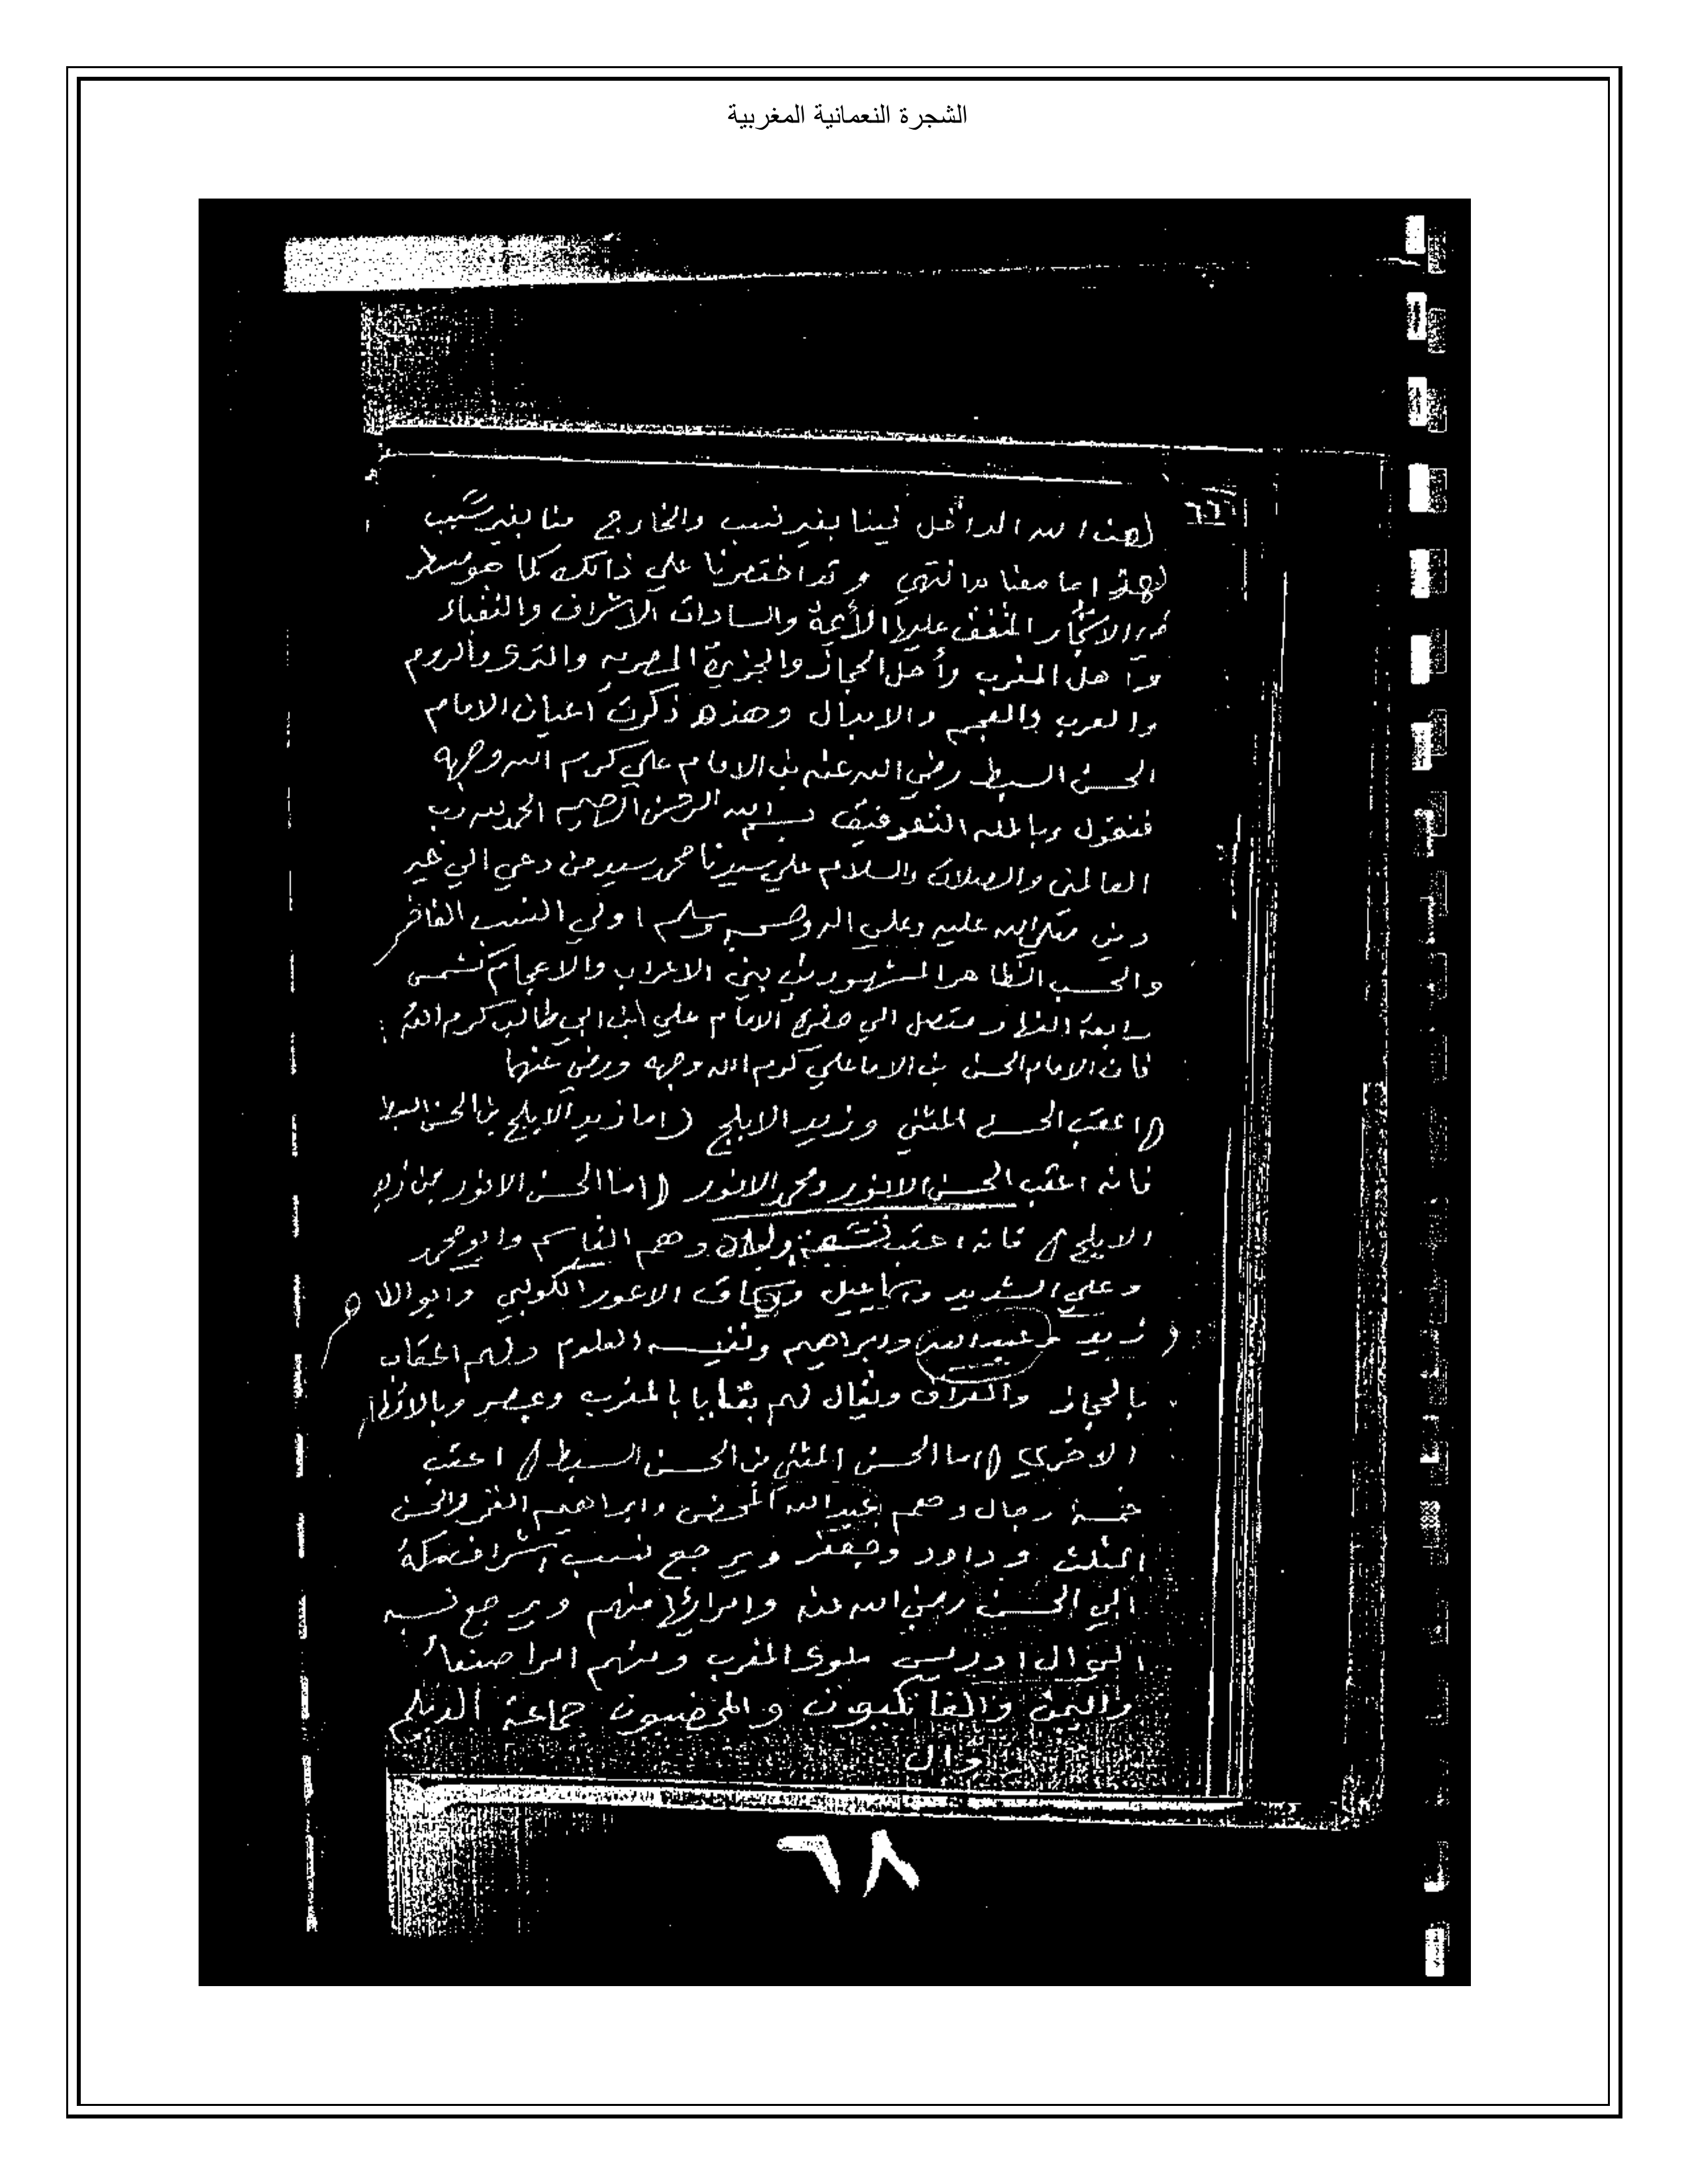 الشجرة النعمانية المغربية
٦٦
لعن الله الداخل فينا بغير نسب والخارج منا بغير سبب
وقد اختصرنا علي ذالك كما هو مسطر
الاشجار المتفق عليها الأئمة والسادات الاشراف والنقباء
وأهل المغرب وأهل الحجاز والجزيرة المصريه والترك والروم
والعرب والعجم والابدال وهذه ذكرت أعيان الامام
الحسن السبط رضي الله عنه بن الامام علي كرم الله وجهه
فنقول وبالله التوفيق بسم الله الرحمن الرحيم الحمد لله رب
العالمن والصلات والسلام علي سيدنا محمد سيد من دعي الي خير
دين صلي الله عليه وعلي اله وصحبه وسلم اولي النسب الفاخر
والحسب الطاهر المشهورين بين الاعراب والاعجام كشمس
رابعة النهار متصل الي حضرة الامام علي ابن ابي طالب كرم الله
فان الامام الحسن بن الاما علي كرم الله وجهه ورضي عنهما
اعقب الحسن المثني وزيد الابلج (اما زيد الابلج بن الحسن السبط
فانه اعقب الحسن الانور ومحمد الانور (اما الحسن الانور بن زيد
الابلج) فانه اعقب تسعة ولاد وهم القاسم وابو محمد
وعلي الشديد وسماعيل وسحاق الاعور الكوكبي وابو الطا
زيد وعبد الله وابراهيم ونفيسه العلوم ولهم اعقاب
بالحجاز والعراق ويقال لهم بقايا بالمغرب وبمصر وبالاقطا
الاخري (اما الحسن المثني بن الحسن السبط) اعقب
خمسة رجال وهم عبد الله المحض وابراهيم الغمر والحسن
المثلث وداود وجعفر ويرجع نسب اشراف مكة
الي الحسن رضي الله عنه وامرائها منهم ويرجع نسبه
ال ادريس ملوك المغرب ومنهم امرا صنعاء
واليمن والمحضيون جماعة الديلم
وال
٦٨